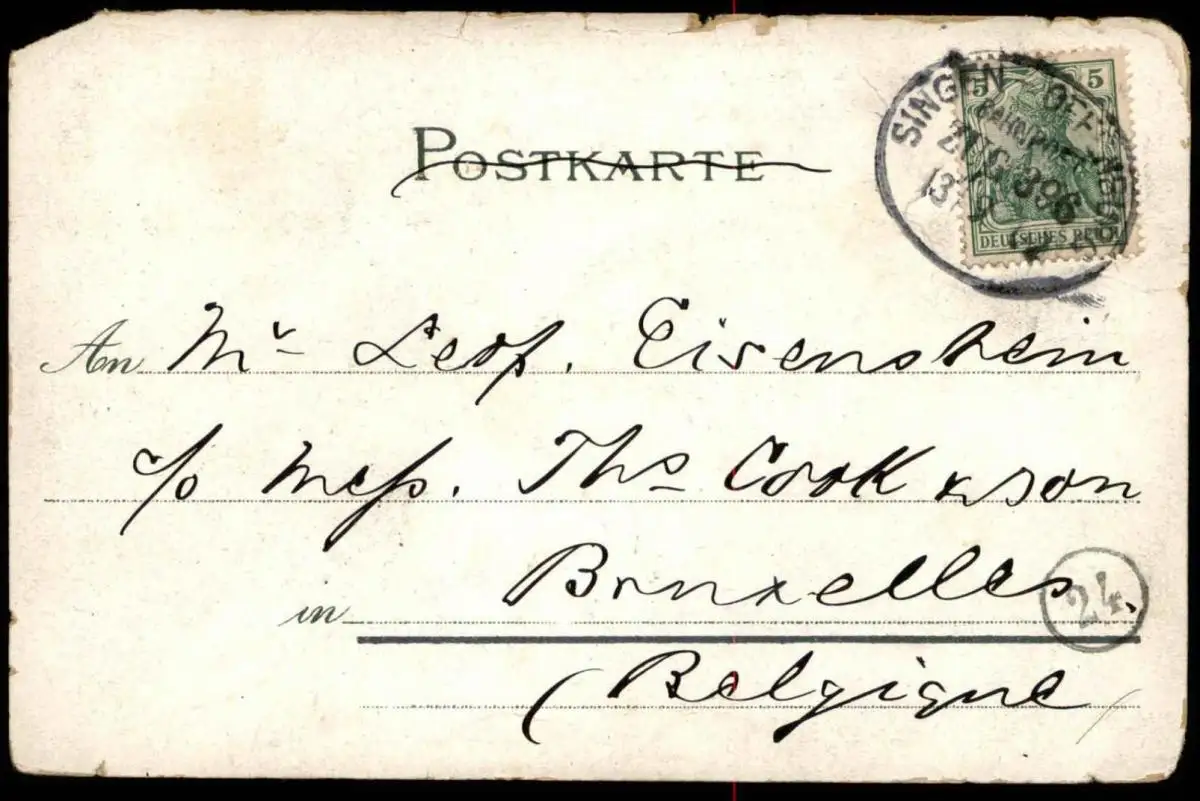 POSTKARTE
SINGEN OFFENBURG
BAHNPOST
ZUG 896
13 9
5 5
DEUTSCHES REICH
An Mr Leop. Eisenstein
c/o Mess. Thos Cook & son
in Bruxelles.
24
(Belgique)